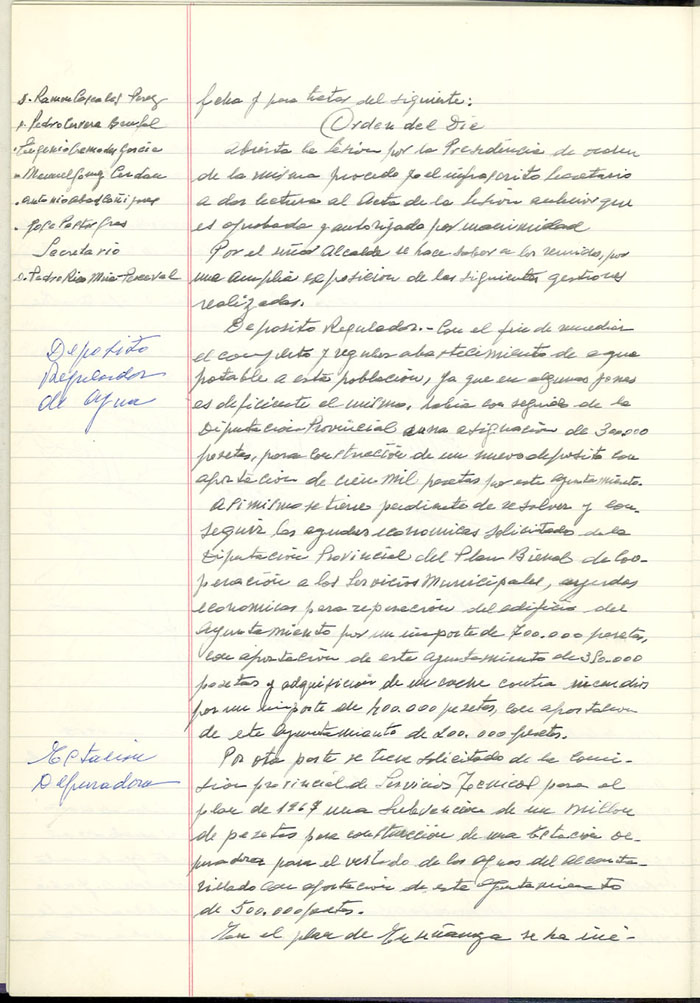 D. Ramon Cascales Perez
D. Pedro Cervera
Eugenio Cremades Garcia
Manuel Cerdan
Antonio Abad Cañizares
Jose Pastor Gras
Secretario
D. Pedro Rico Mira-Perceval
fecha y para tratar del siguiente:
Orden del Dia
Abierta la sesión por la Presidencia de orden
de la misma procedo yo el infrascrito Secretario
a dar lectura al Acta de la sesión anterior que
es aprobada y autorizada por unanimidad
Por el señor Alcalde se hace saber a los reunidos, por
una amplia exposicion de las siguientes gestiones
realizadas.
Deposito
Regulador
de Agua
Deposito Regulador.- Con el fin de remediar
el completo y regular abastecimiento de agua
potable a esta población, ya que en algunas zonas
es deficiente el mismo, habia conseguido de la
Diputación Provincial una asignación de 300.000
pesetas, para construcción de un nuevo deposito con
aportacion de cien mil pesetas por este ayuntamiento.
Asimismo se tiene pendiente de resolver y con-
seguir las ayudas economicas solicitadas de la
Diputación Provincial del Plan Bienal de Coo-
peración a los Servicios Municipales, ayudas
economicas para reparación del edificio del
Ayuntamiento por un importe de 700.000 pesetas,
con aportación de este Ayuntamiento de 350.000
pesetas y adquisicion de un coche contra incendios
por un importe de 400.000 pesetas, con aportacion
de este Ayuntamiento de 200.000 pesetas.
Estacion
Depuradora
Por otra parte se tiene solicitado de la Comi-
sion provincial de Servicios Tecnicos para el
plan de 1967 una Subvención de un Millon
de pesetas para construcción de una Estación De-
puradora para el vertido de las aguas del alcanta-
rillado con aportación de este Ayuntamiento
de 500.000 pesetas.
En el plan de Enseñanza se ha ini-